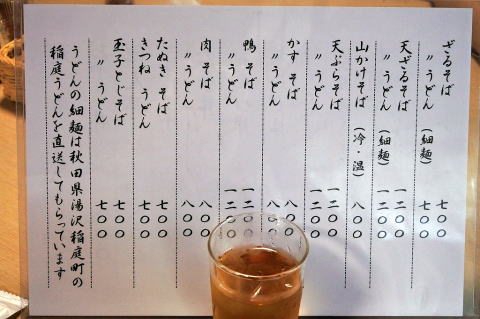 ざるそば 七〇〇
〃 うどん (細麺) 七〇〇
天ざるそば 一二〇〇
〃 うどん (細麺) 一二〇〇
山かけそば (冷・温) 八〇〇
天ぷらそば 一二〇〇
〃 うどん 一二〇〇
かす そば 八〇〇
〃 うどん 八〇〇
鴨 そば 一二〇〇
〃 うどん 一二〇〇
肉 そば 八〇〇
〃 うどん 八〇〇
たぬき そば 七〇〇
きつね うどん 七〇〇
玉子とじそば 七〇〇
〃 うどん 七〇〇
うどんの細麺は秋田県湯沢稲庭町の
稲庭うどんを直送してもらっています